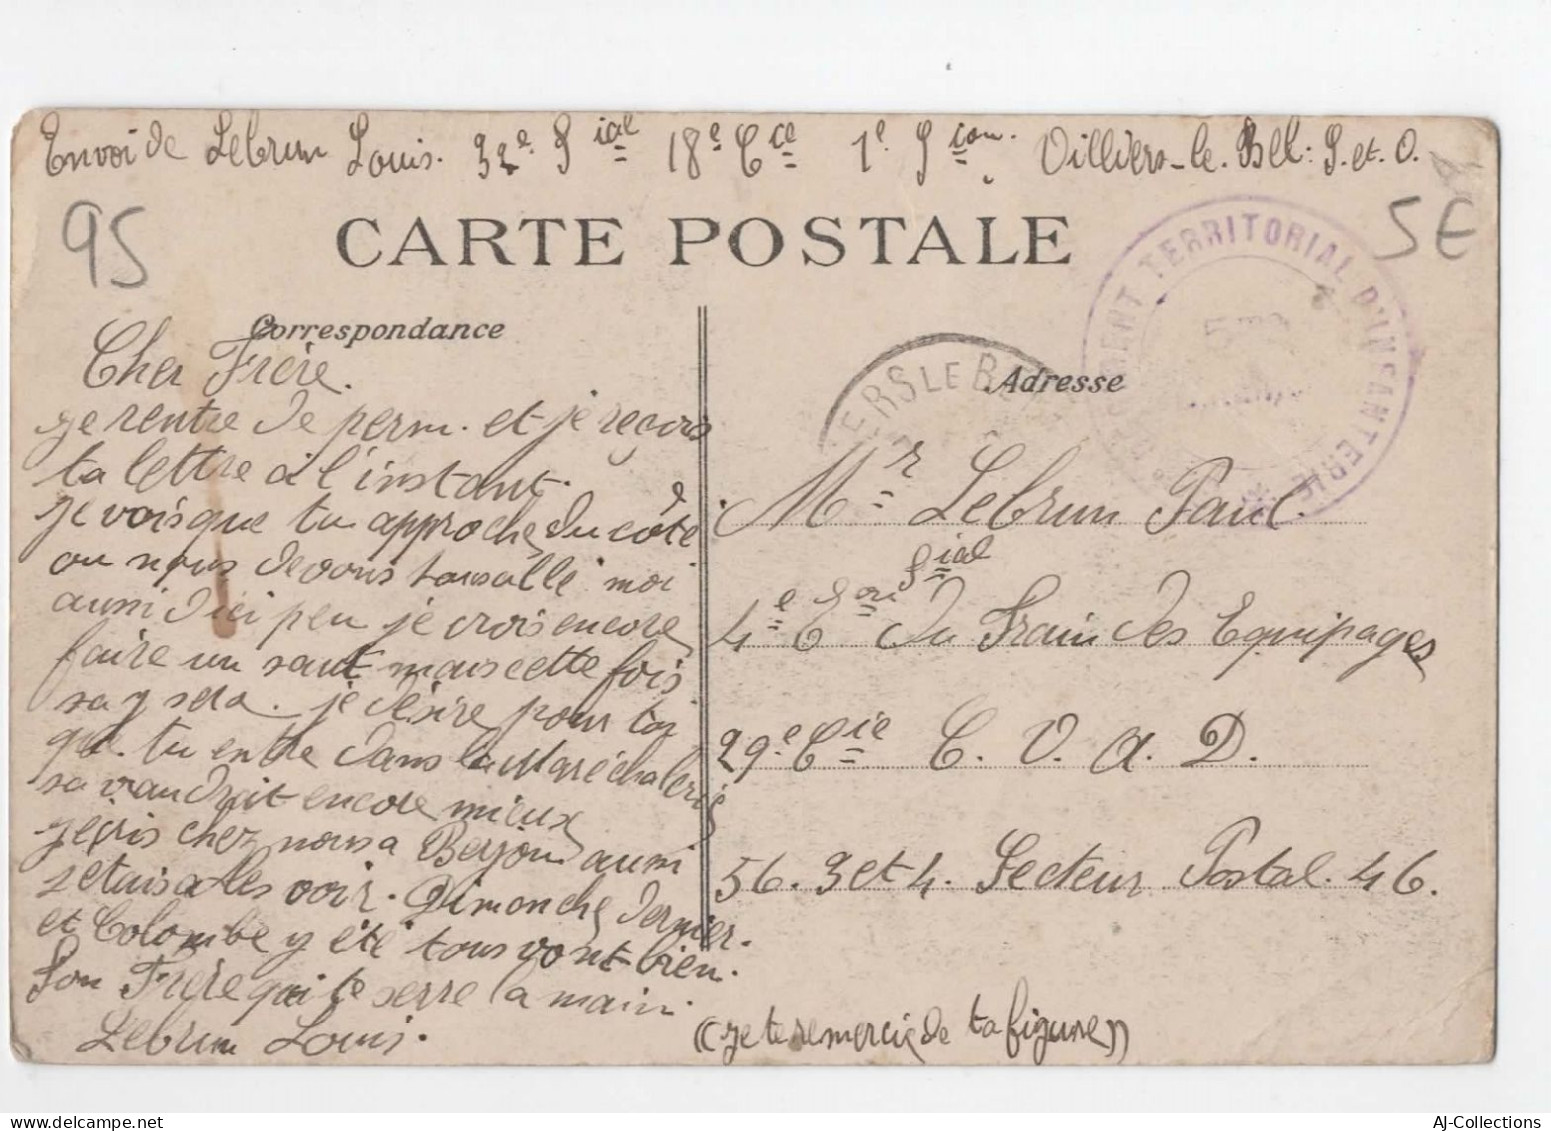 Envoi de Lebrun Louis. 32e. Sial 18e Cce 1e. Scion. Villiers-le-Bel: S. et. O.
95
5E
CARTE POSTALE
REGIMENT TERRITORIAL D'INFANTERIE
5me
Correspondance
ERS LE B
Adresse
Cher Frère.
je rentre de perm. et je reçois
ta lettre à l'instant.
je vois que tu approche du côté
ou nous devons tous allé moi
aussi d'ici peu je crois encore
faire un saut mais cette fois
sa y sera. je désire pour toi
que tu entre dans la Maréchalerie
sa vaudrait encore mieux
jécris chez nous a Beyou aussi
jetais a les voir. Dimanche dernier.
et Colombe y été tous vont bien.
Ton Frère qui te serre la main.
Lebrun Louis.
Mr Lebrun Paul.
4e Eon Sial du Train des Equipages
29e Cie C. V. A. D.
56. 3 et 4. Secteur Postal. 46.
((je te remercie de ta figure))
AJ-Collections